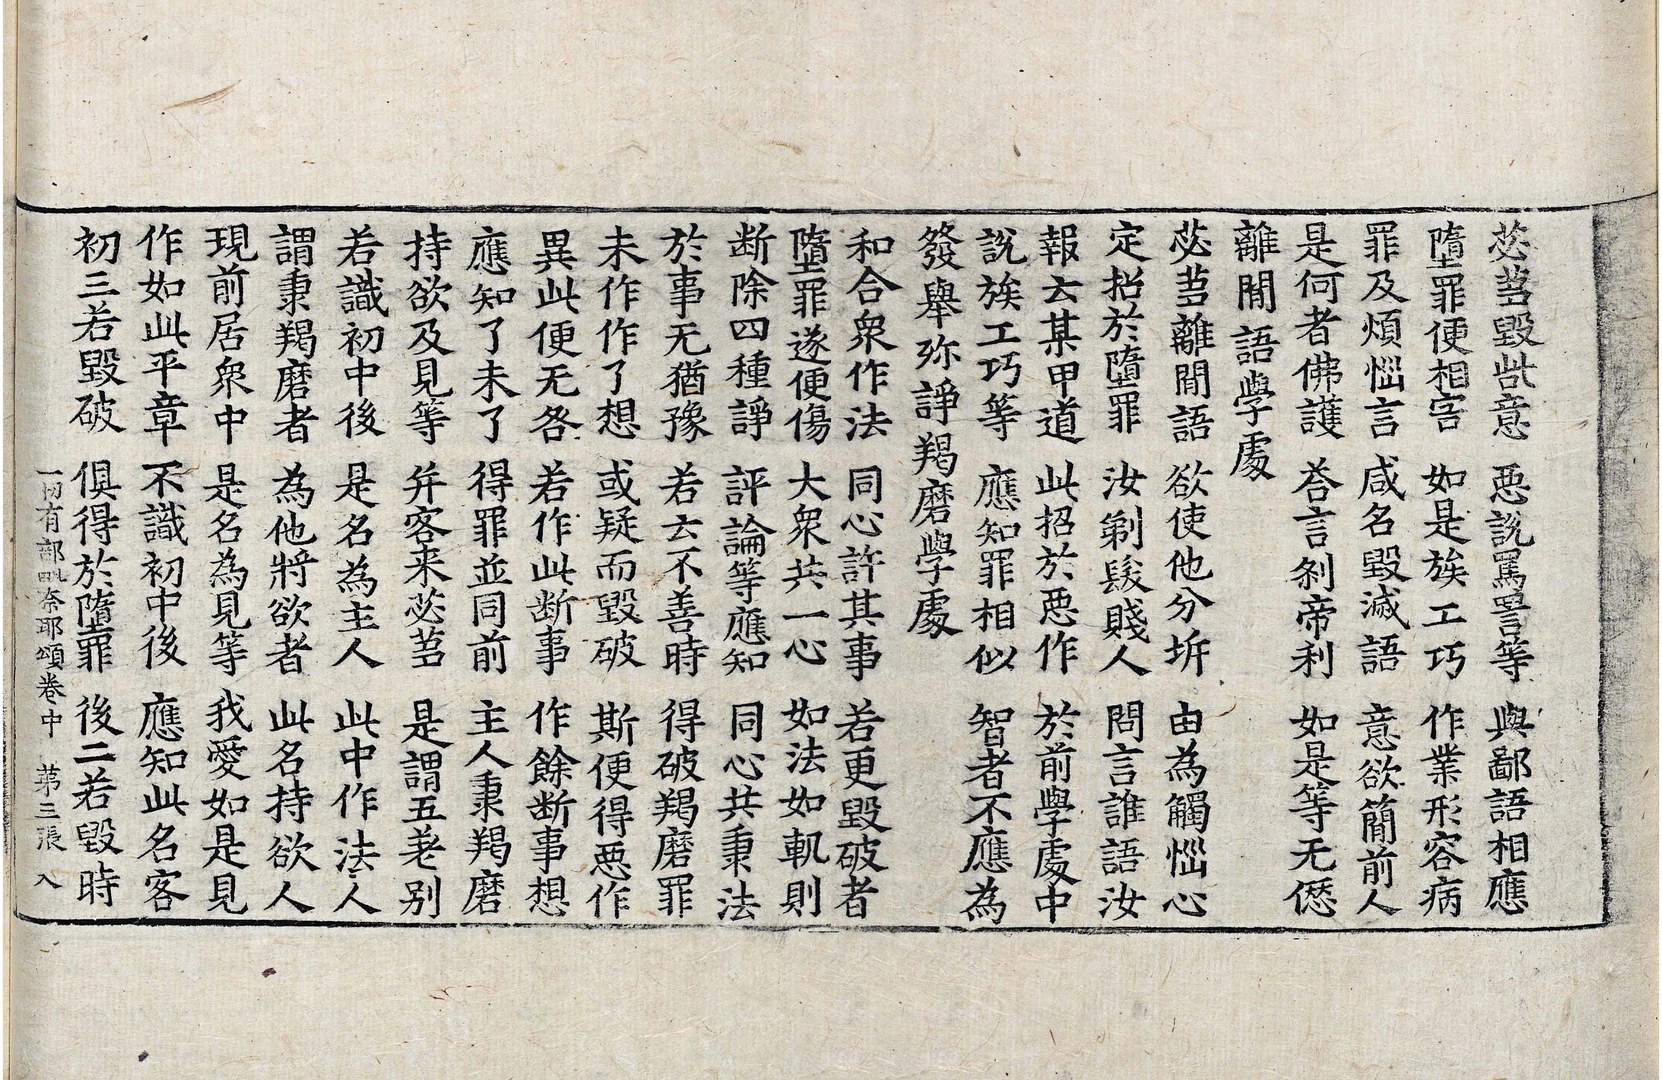 苾芻毀呰意　惡說罵詈等　與鄙語相應
墮罪便相害　如是族工巧　作業形容病
罪及煩惱言　咸名毀滅語　意欲簡前人
是何者佛護　荅言剎帝利　如是等无愆
離間語學處
苾芻離間語　欲使他分坼　由為觸惱心
定招於墮罪　汝剃髮賤人　問言誰語汝
報云某甲道　此招於惡作　於前學處中
說族工巧等　應知罪相似　智者不應為
發舉殄諍羯磨學處
和合衆作法　同心許其事　若更毀破者
墮罪遂便傷　大衆共一心　如法如軌則
断除四種諍　評論等應知　同心共秉法
於事无猶豫　若云不善時　得破羯磨罪
未作作了想　或疑而毀破　斯便得惡作
異此便无各　若作此断事　作餘断事想
應知了未了　得罪並同前　主人秉羯磨
持欲及見等　并客来苾芻　是謂五差别
若識初中後　是名為主人　此中作法人
謂秉羯磨者　為他將欲者　此名持欲人
現前居衆中　是名為見等　我愛如是見
作如此平章　不識初中後　應知此名客
初三若毀破　俱得於墮罪　後二若毀時
一切有部毗奈耶頌卷中　第三張　入